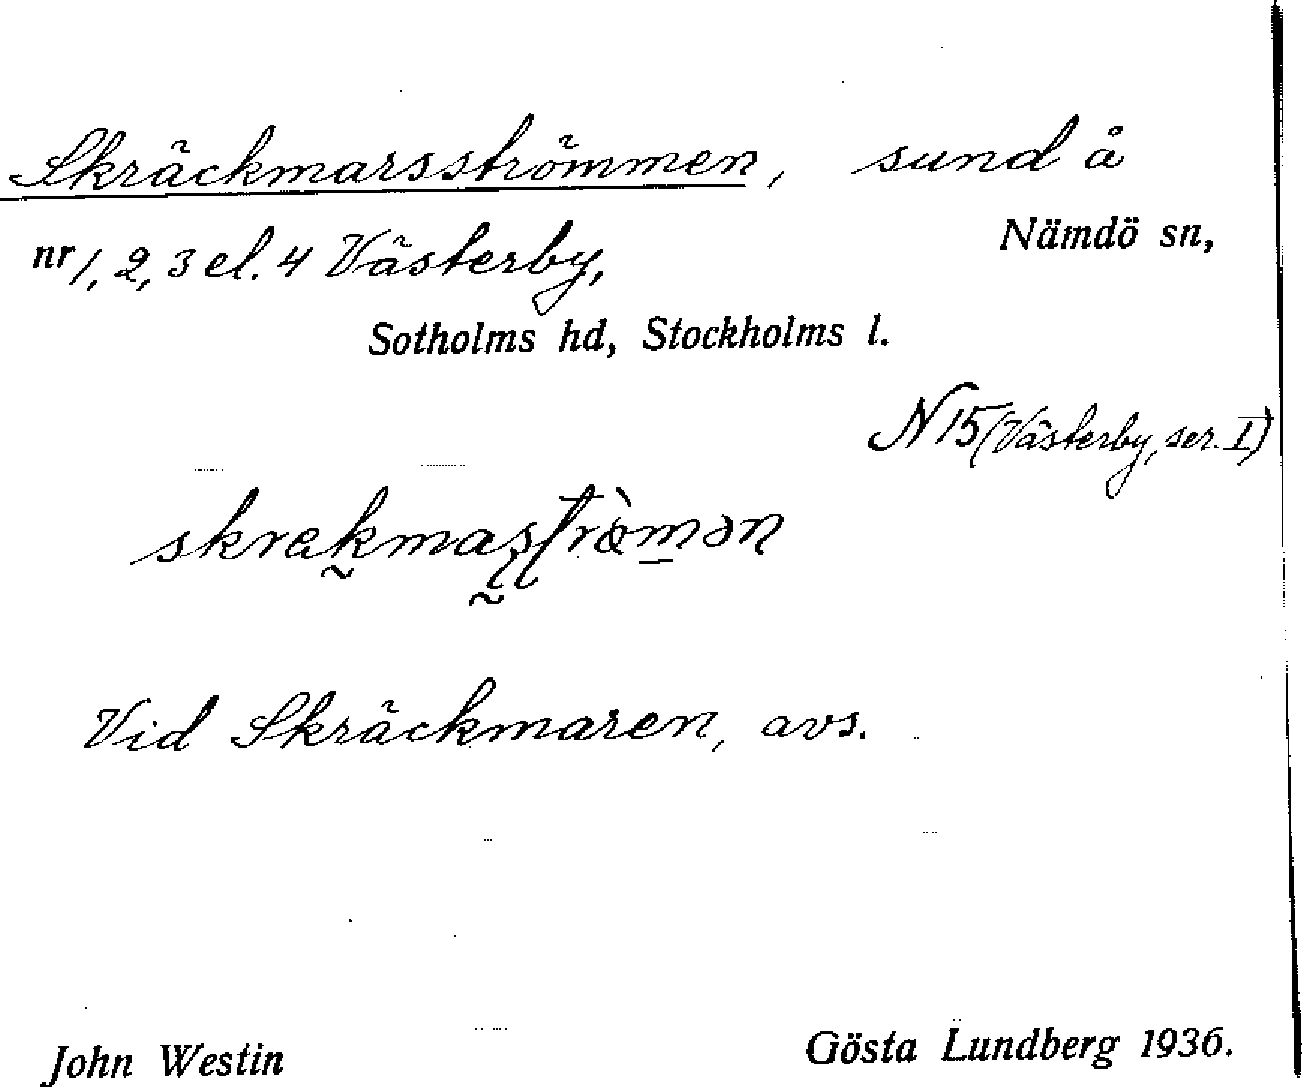 Skräckmarsströmmen, sund å
nr 1, 2, 3 el. 4 Västerby,
Nämdö sn,
Sotholms hd, Stockholms l.
N 15 (Västerby, ser. I)
Vid Skräckmaren, avs.
John Westin
Gösta Lundberg 1936.